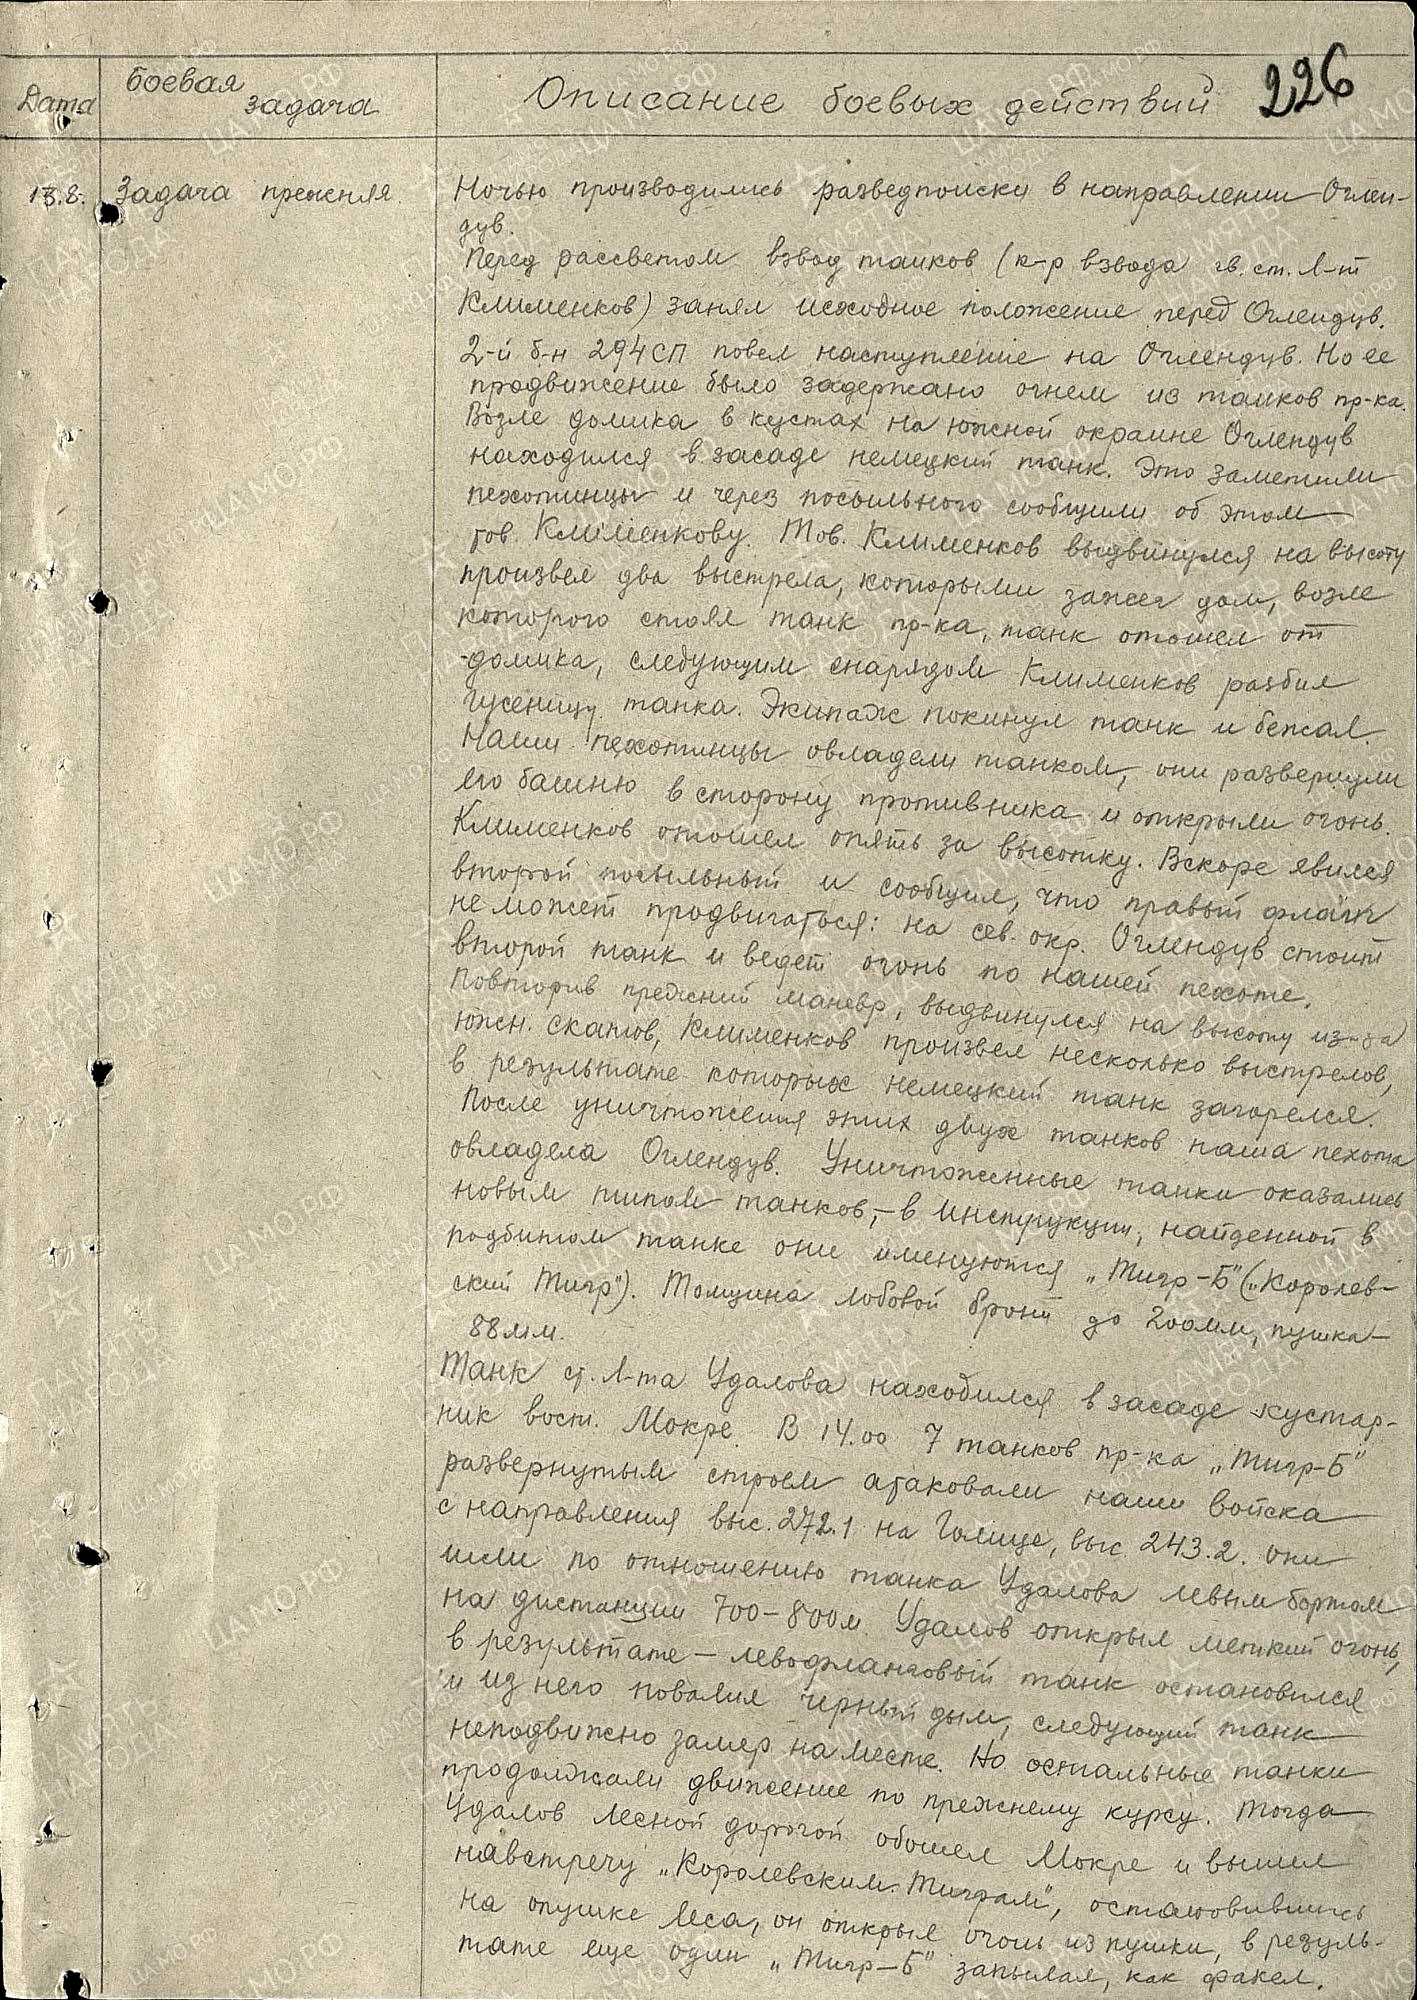 226
Дата
Боевая
задача
Описание боевых действий
13.8.
Задача прежняя.
Ночью производились разведпоиски в направлении Оглен-
дув.
Перед рассветом взвод танков (к-р взвода гв. ст. л-т
Клименков) занял исходное положение перед Оглендув.
2-й б-н 294СП повел наступление на Оглендув. Но ее
продвижение было задержано огнем из танков пр-ка.
Возле домика в кустах на южной окраине Оглендув
находился в засаде немецкий танк. Это заметили
пехотинцы и через посыльного сообщили об этом
тов. Клименкову. Тов. Клименков выдвинулся на высоту
произвел два выстрела, которыми зажег дом, возле
которого стоял танк пр-ка, танк отошел от
домика, следующим снарядом Клименков разбил
гусеницу танка. Экипаж покинул танк и бежал.
Наши пехотинцы овладели танком, они развернули
его башню в сторону противника и открыли огонь.
Клименков отошел опять за высотку. Вскоре явился
второй посыльный и сообщил, что правый фланг
не может продвигаться: на сев. окр. Оглендув стоит
второй танк и ведет огонь по нашей пехоте.
Повторив прежний маневр, выдвинулся на высоту из-за
южн. скатов, Клименков произвел несколько выстрелов,
в результате которых немецкий танк загорелся.
После уничтожения этих двух танков наша пехота
овладела Оглендув. Уничтоженные танки оказались
новым типом танков, – в инструкции, найденной в
подбитом танке они именуются „Тигр-Б" („Королев-
ский Тигр"). Толщина лобовой брони до 200мм, пушка –
88мм.
Танк ст. л-та Удалова находился в засаде кустар-
ник вост. Мокре. В 14.00 7 танков пр-ка „Тигр-Б"
развернутым строем атаковали наши войска
с направления выс. 272.1 на Голице, выс. 243.2. они
шли по отношению танка Удалова левым бортом
на дистанции 700-800м. Удалов открыл меткий огонь,
в результате – левофланговый танк остановился
и из него повалил черный дым, следующий танк
неподвижно замер на месте. Но остальные танки
продолжали движение по прежнему курсу. Тогда
Удалов лесной дорогой обошел Мокре и вышел
навстречу „Королевским Тиграм", остановившись
на опушке леса, он открыл огонь из пушки, в резуль-
тате еще один „Тигр-Б" запылал, как факел.